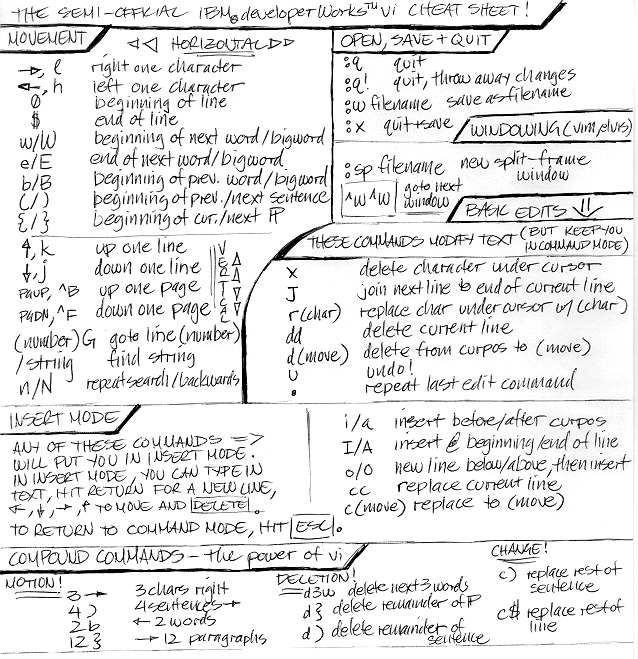 THE SEMI-OFFICIAL IBM® developerWorks™ vi CHEAT SHEET!
MOVEMENT
◁◁ HORIZONTAL ▷▷
→, l right one character
←, h left one character
0 beginning of line
$ end of line
w/W beginning of next word/bigword
e/E end of next word/bigword
b/B beginning of prev. word/bigword
(/) beginning of prev./next sentence
{/} beginning of cur./next ¶
↑, k up one line
↓, j down one line
PgUP, ^B up one page
PgDN, ^F down one page
VERTICAL
(number)G goto line (number)
/string find string
n/N repeat search/backwards
OPEN, SAVE + QUIT
:q quit
:q! quit, throw away changes
:w filename save as filename
:x quit+save
WINDOWING (vim, elvis)
:sp filename new split-frame
window
^W^W goto next
window
BASIC EDITS ⇓
THESE COMMANDS MODIFY TEXT (BUT KEEP YOU
IN COMMAND MODE)
x delete character under cursor
J join next line to end of current line
r(char) replace char under cursor w/(char)
dd delete current line
d(move) delete from curpos to (move)
U undo!
. repeat last edit command
INSERT MODE
ANY OF THESE COMMANDS =>
WILL PUT YOU IN INSERT MODE.
IN INSERT MODE, YOU CAN TYPE IN
TEXT, HIT RETURN FOR A NEW LINE,
←, ↓, →, ↑ TO MOVE AND DELETE.
TO RETURN TO COMMAND MODE, HIT ESC.
i/a insert before/after curpos
I/A insert @ beginning/end of line
o/O new line below/above, then insert
cc replace current line
c(move) replace to (move)
COMPOUND COMMANDS – the power of vi
MOTION!
3→ 3 chars right
4) 4 sentences →
2b ← 2 words
12} → 12 paragraphs
DELETION!
d3w delete next 3 words
d} delete remainder of ¶
d) delete remainder of
sentence
CHANGE!
c) replace rest of
sentence
c$ replace rest of
line